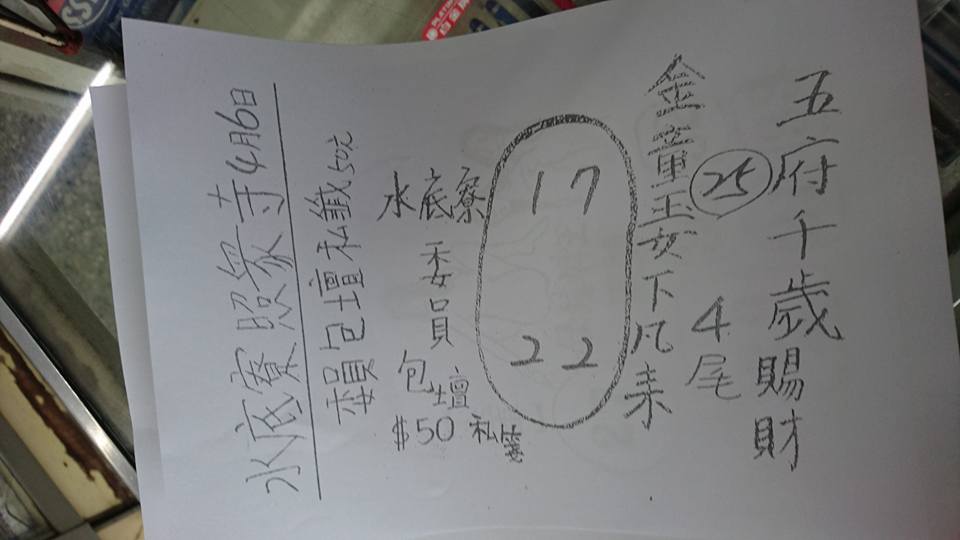 五府千歲賜財
25 4尾
金童玉女下凡來
17
22
水底寮
委員
包壇
$50 私笺
委員包壇私籤50元
水底寮照眾寺4月6日